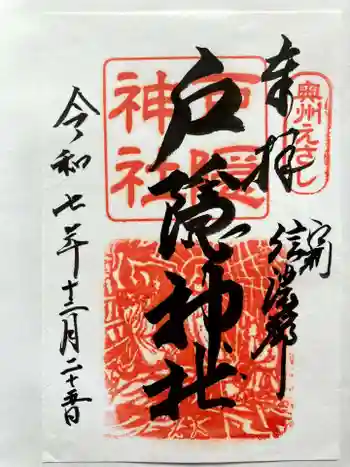 奉拝
奥州えさし
戸隠神社
戸隠
神社
令和七年十二月二十五日